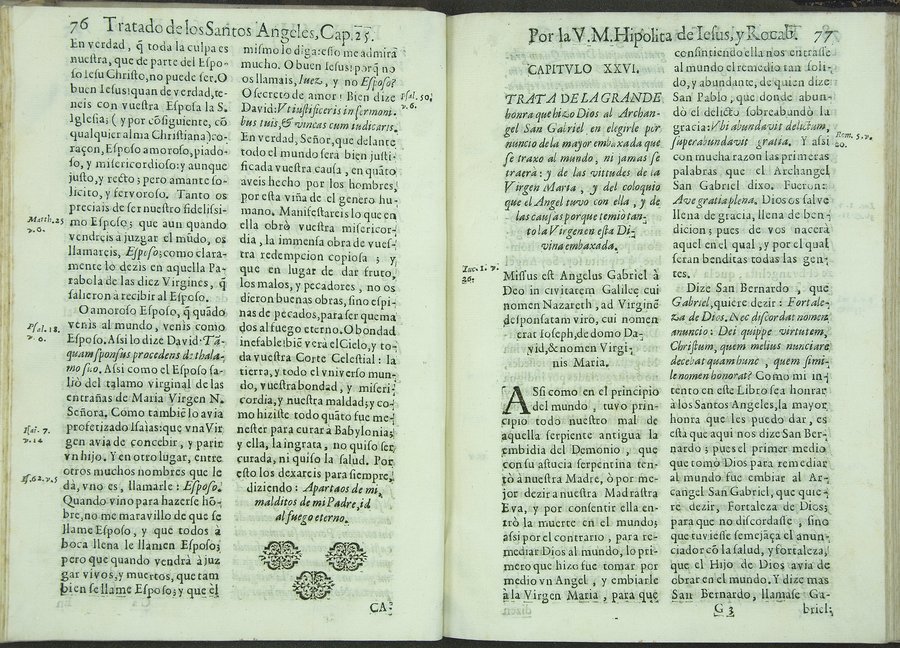 76 Tratado de los Santos Angeles, Cap. 25.
En verdad, q̃ toda la culpa es
nuestra, que de parte del Espo-
so Iesu Christo, no puede ser. O
buen Iesus! quan de verdad, te-
neis con vuestra Esposa la S.
Iglesia; (y por cõsiguiente, cõ
qualquier alma Christiana) co-
raçon, Esposo amoroso, piado-
so, y misericordioso: y aunque
justo, y recto; pero amante so-
licito, y fervoroso. Tanto os
preciais de ser nuestro fidelissi-
Matth. 25
mo Esposo; que aun quando
v. 6.
vendreis à juzgar el mũdo, os
llamareis, Esposo; como clara-
mente lo dezis en aquella Pa-
rabola de las diez Virgines, q̃
salieron à recibir al Esposo.
O amoroso Esposo, q̃ quãdo
Psal. 18.
venis al mundo, venis como
v. 6.
Esposo. Assi lo dize David: Tã-
quam sponsus procedens de thala-
mo suo. Assi como el Esposo sa-
liò del talamo virginal de las
entrañas de Maria Virgen N.
Señora. Como tambiẽ lo avia
Isai. 7.
profetizado Isaìas: que vna Vir
v. 14
gen avia de concebir, y parir
vn hijo. Y en otro lugar, entre
otros muchos nombres que le
Is. 62. v. 5
dà, vno es, llamarle: Esposo.
Quando vino para hazerse hõ-
bre, no me maravillo de que se
llame Esposo, y que todos à
boca llena le llamen Esposo;
pero que quando vendrà à juz
gar vivos, y muertos, que tam
bien se llame Esposo; y que èl
mismo lo diga: esto me admira
mucho. O buen Iesus! porq̃ no
os llamais, Iuez, y no Esposo?
O secreto de amor! Bien dize
Psal. 50.
David: Vt iustificeris in sermoni-
v. 6.
bus tuis, & vincas cum iudicaris.
En verdad, Señor, que delante
todo el mundo serà bien justi-
ficada vuestra causa, en quãto
aveis hecho por los hombres,
por esta viña de el genero hu-
mano. Manifestareis lo que en
ella obrò vuestra misericor-
dia, la immensa obra de vues-
tra redempcion copiosa; y
que en lugar de dar fruto,
los malos, y pecadores, no os
dieron buenas obras, sino espi-
nas de pecados, para ser quema
dos al fuego eterno. O bondad
inefable! biẽ verà el Cielo, y to-
da vuestra Corte Celestial: la
tierra, y todo el vniverso mun-
do, vuestra bondad, y miseri-
cordia, y nuestra maldad; y co-
mo hiziste todo quãto fue me-
nester para curar à Babylonia;
y ella, la ingrata, no quiso ser
curada, ni quiso la salud. Por
esto los dexareis para siempre,
diziendo: Apartaos de mi,
malditos de mi Padre, id
al fuego eterno.
CA-
Por la V. M. Hipolita de Iesus, y Rocab. 77
CAPITVLO XXVI.
TRATA DE LA GRANDE
honra que hizo Dios al Archan-
gel San Gabriel en elegirle per
nuncio de la mayor embaxada que
se traxo al mundo, ni jamas se
traera: y de las virtudes de la
Virgen Maria, y del coloquio
que el Angel tuvo con ella, y de
las causas porque temio tan-
to la Virgen en esta Di-
vina embaxada.
Luc. 1. v.
26.
Missus est Angelus Gabriel à
Deo in civitatem Galileę cui
nomen Nazareth, ad Virginẽ
desponsatam viro, cui nomen
erat Ioseph, de domo Da-
vid, & nomen Virgi-
nis Maria.
ASsi como en el principio
del mundo, tuvo prin-
cipio todo nuestro mal de
aquella serpiente antigua la
embidia del Demonio, que
con su astucia serpentina ten-
tò à nuestra Madre, ò por me-
jor dezir à nuestra Madrastra
Eva, y por consentir ella en-
trò la muerte en el mundo;
assi por el contrario, para re-
mediar Dios al mundo, lo pri-
mero que hizo fue tomar por
medio vn Angel, y embiarle
à la Virgen Maria, para que
consintiendo ella nos entrasse
al mundo el remedio tan soli-
do, y abundante, de quien dize
San Pablo, que donde abun-
dò el delicto sobreabundò la
gracia: Vbi abundavit delictum,
Rom. 5. v.
superabundavit gratia. Y assi
20.
con mucha razon las primeras
palabras que el Archangel
San Gabriel dixo. Fueron:
Ave gratia plena. Dios os salve
llena de gracia, llena de ben-
dicion; pues de vos nacerà
aquel en el qual, y por el qual
seran benditas todas las gen-
tes.
Dize San Bernardo, que
Gabriel, quiere dezir: Fortale-
za de Dios. Nec discordat nomen
anuncio: Dei quippe virtutem,
Christum, quem melius nunciare
decebat quam hunc, quem simi-
le nomen honorat? Como mi in-
tento en este Libro sea honrar
à los Santos Angeles, la mayor
honra que les puedo dar, es
esta que aqui nos dize San Ber-
nardo; pues el primer medio
que tomò Dios para remediar
al mundo fue embiar al Ar-
cangel San Gabriel, que quie-
re dezir, Fortaleza de Dios;
para que no discordasse, sino
que tuviesse semejãça el anun-
ciador cõ la salud, y fortaleza,
que el Hijo de Dios avia de
obrar en el mundo. Y dize mas
San Bernardo, llamase Ga-
G 3 briel;